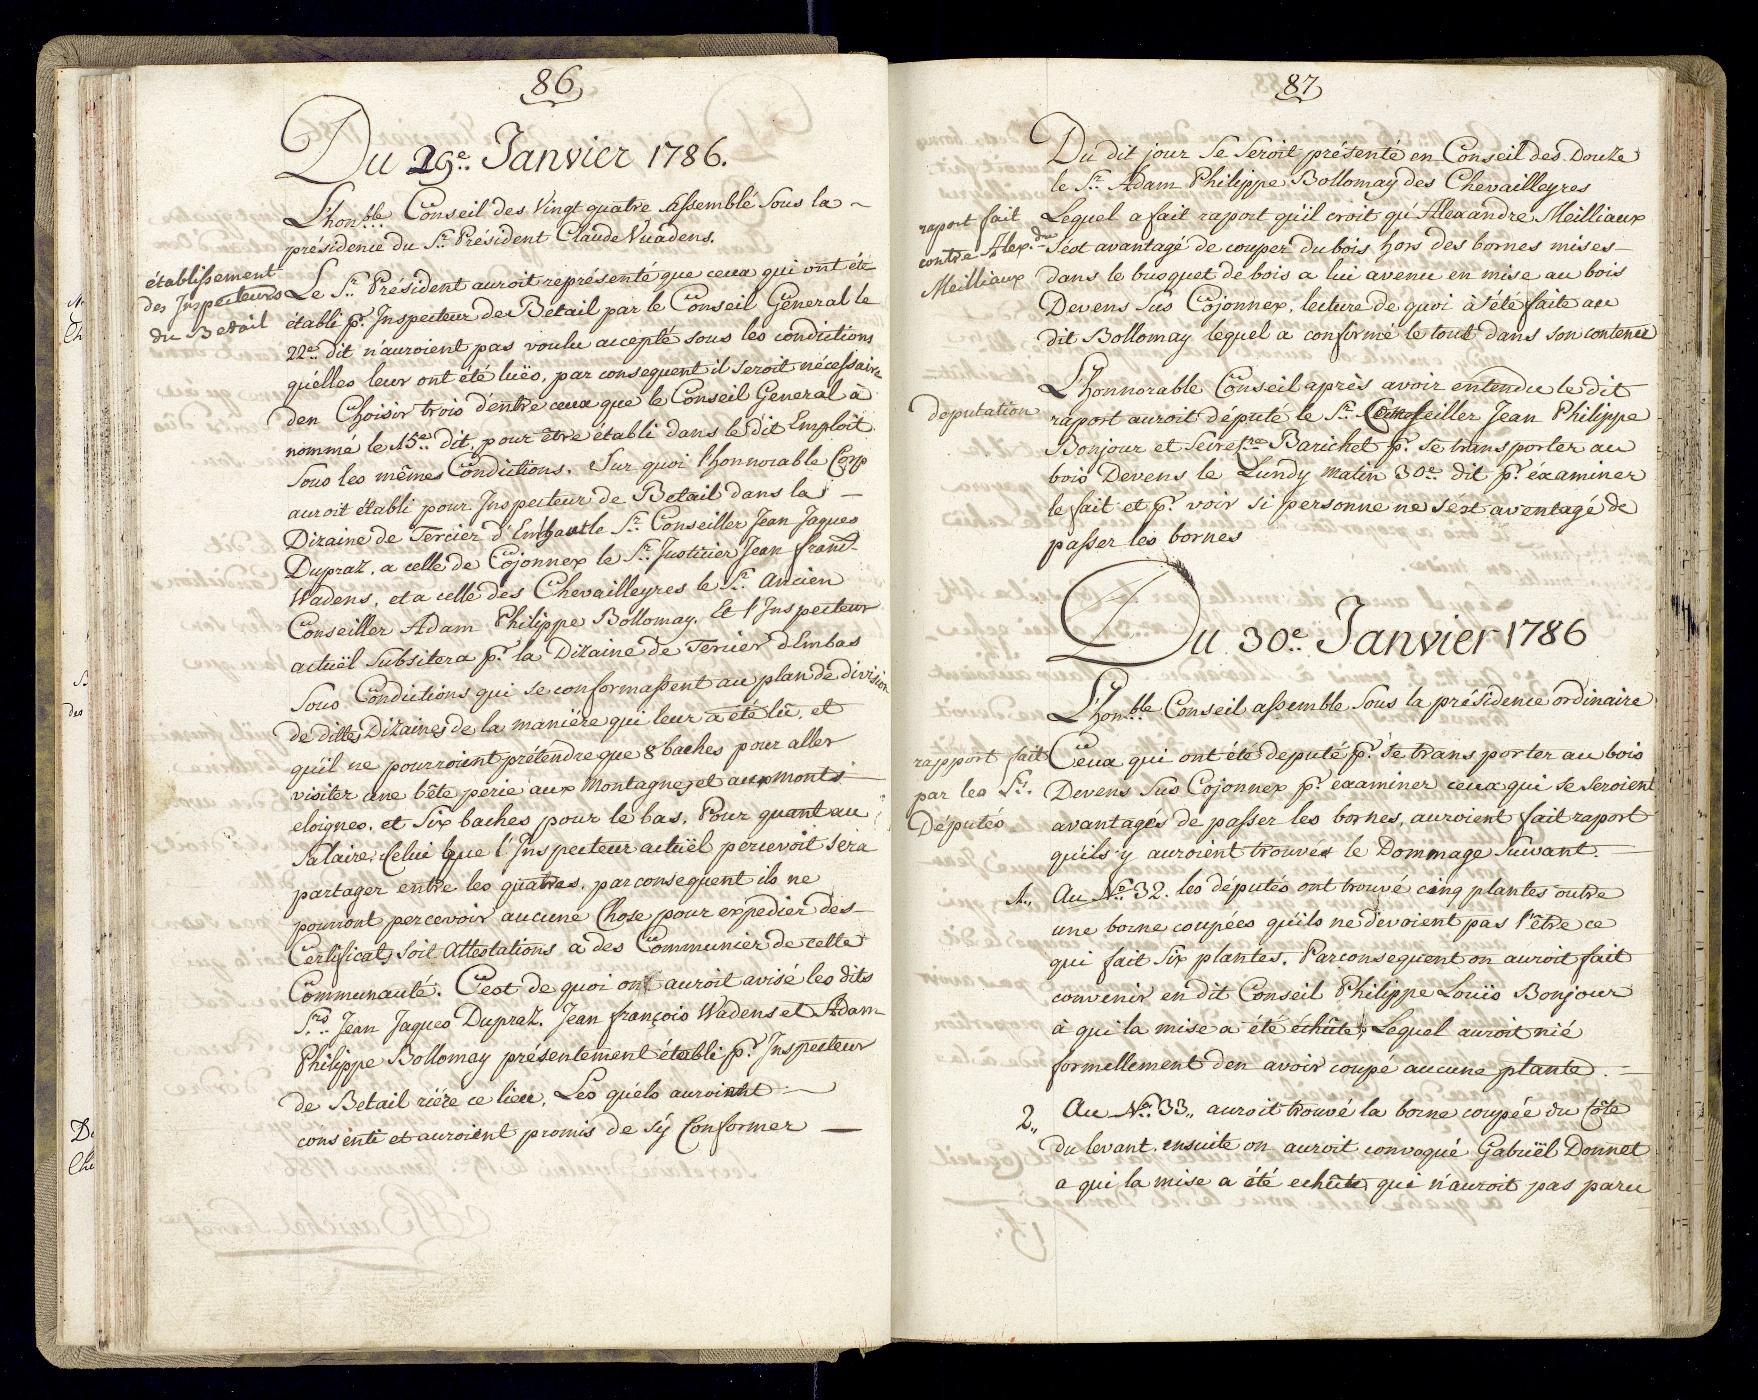 86
Du 29e. Janvier 1786.
L'hon.ble Conseil des Vingt quatre Assemblé Sous la
présidence du Sr. Président Claude Vuadens.
établissement
des Inspecteurs
du Betail
Le Sr. Président auroit représenté que ceux qui ont été
établi pr. Inspecteur de Betail par le Conseil General le
22e. dit n'auroient pas voulu accepté sous les condictions
qu'elles leur ont été luës, par consequent il seroit nécessaire
den Choisir trois d'entre ceux que le Conseil General à
nommé le 15e. dit, pour être établi dans le dit Emploit
Sous les mêmes Condictions. Sur quoi l'honnorable Corp
auroit établi pour Inspecteur de Betail dans la
Dizaine de Tercier d'Enhaut le Sr. Conseiller Jean Jaques
Dupraz. a celle de Cojonnex le Sr. Justicier Jean franc.
Wadens, et a celle des Chevailleyres le Sr. Ancien
Conseiller Adam Philippe Bollomay. Et l'Inspecteur
actuël Subsitera pr. la Dizaine de Tercier d'Embas
Sous Condictions qui se conformassent au plan de division
de dittes Dizaines de la maniére qui leur a été lû, et
qu'il ne pourroient prétendre que 8 baches pour aller
visiter une bête périe aux Montagnes et aux monts
eloignes. et Six baches pour le bas. Pour quant au
Salaire, Celui que l'Inspecteur actuël percevoit sera
partager entre les quatres. par consequent ils ne
pourront percevoir aucune Chose pour expedier des
Certificats, soit Attestations a des Communier de cette
Communauté. C'est de quoi on auroit avisé les dits
Srs. Jean Jaques Dupraz. Jean françois Wadens et Adam
Philippe Bollomay présentement établi pr. Inspecteur
de Betail riére ce lieu, Les quéls auroient
consenti et auroient promis de s'y Conformer
87
Du dit jour Se Seroit présenté en Conseil des Douze
le Sr. Adam Philippe Bollomay des Chevailleyres
raport fait
contre Alex.dre
Meilliaux
Lequel a fait raport qu'il croit qu'Alexandre Meilliaux
s'est avantagé de couper du bois hors des bornes mises
dans le bucquet de bois a lui avenu en mise au bois
Devens Sus Cojonnex, lecture de quoi à été faite au
dit Bollomay lequel a confirmé le tout dans son contenu
deputation
L'honnorable Conseil après avoir entendu le dit
raport auroit député le Sr. Conseiller Jean Philippe
Bonjour et Secret.re Barichet pr. se transporter au
bois Devens le Lundy matin 30e. dit pr. éxaminer
le fait et pr. voir si personne ne s'est aventagé de
passer les bornes
Du 30e. Janvier 1786
L'hon.ble Conseil assemble Sous la présidence ordinaire
rapport fait
par les Srs.
Députés
Ceux qui ont été deputé pr. se transporter au bois
Devens Sus Cojonnex pr. examiner ceux qui se seroient
avantagés de passer les bornes, auroient fait raport
qu'ils y auroient trouvés le Dommage Suivant.
1.. Au No. 32. les députés ont trouvé cinq plantes outre
une borne coupées qu'ils ne devoient pas l'être ce
qui fait Six plantes. Par consequent on auroit fait
convenir en dit Conseil Philippe Louïs Bonjour
à qui la mise a été échûte, Lequel auroit nié
formellement den avoir coupé aucune plante.
2.. Au No. 33.. auroit trouvé la borne coupée du côte
du levant. ensuite on auroit convoqué Gabriël Donnet
a qui la mise a été echûte, qui n'auroit pas paru